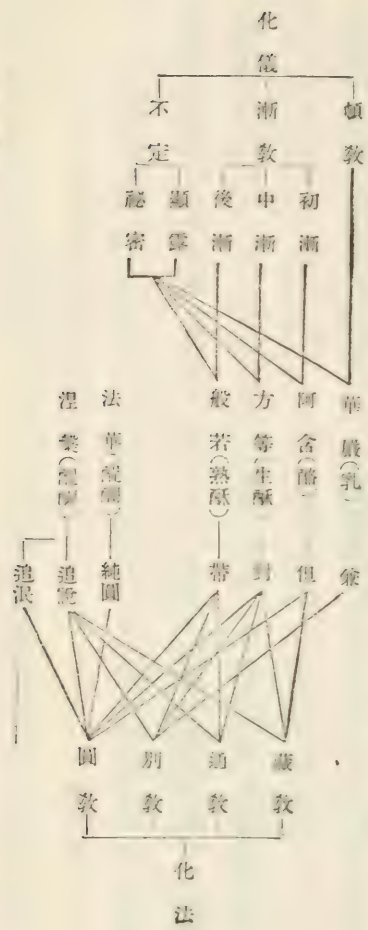 化儀
頓教
漸教
不定
初漸
中漸
後漸
顯露
祕密
華嚴(乳)
阿含(酪)
方等(生酥)
般若(熟酥)
法華(醍醐)
涅槃(醍醐)
兼
但
對
帶
純圓
追說
追泯
藏教
通教
別教
圓教
化法